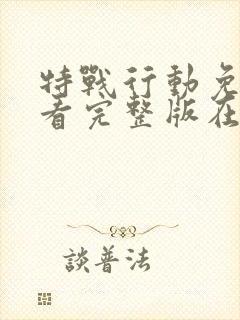 特戰行動免
看完整版在
談普法